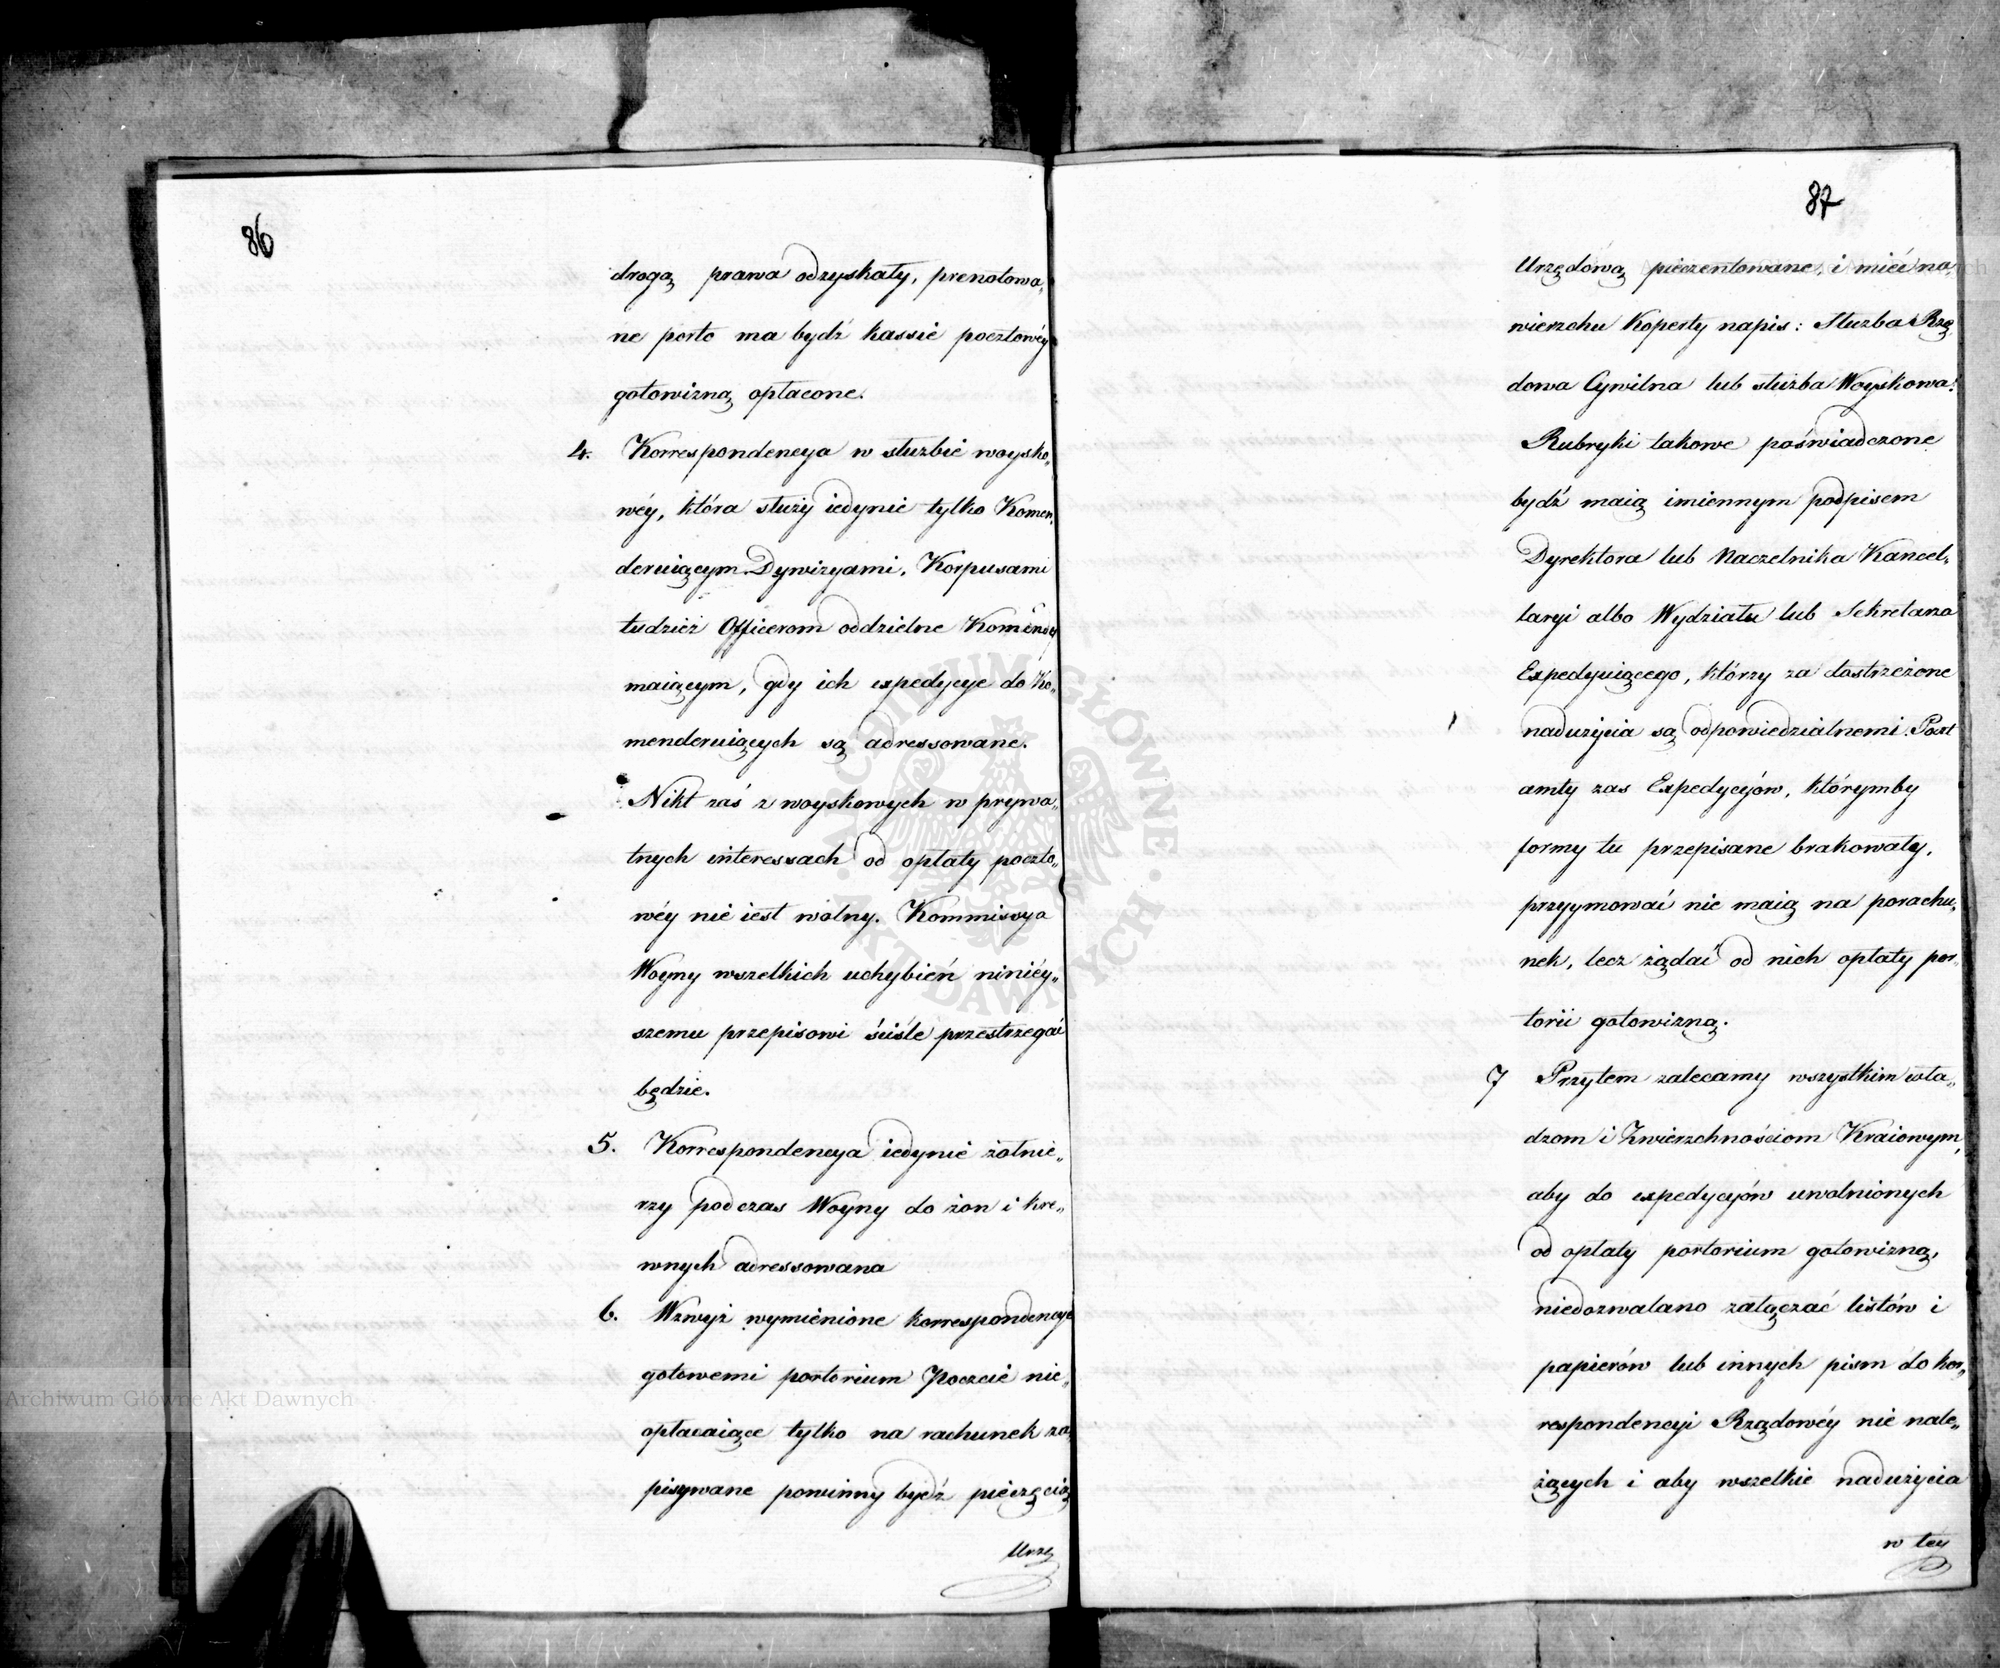 86
drogą prawa odzyskały, prenotowa„
ne porto ma bydź kassie pocztowéy
gotowizną opłacone.
4. Korrespondencya w służbie woysko„
wéy, która służy iedynie tylko Komen„
deruiącym Dywizyami, Korpusami
tudzież Officerom oddzielne Komendy
maiącym, gdy ich expedycye do Ko„
menderuiących są adressowane.
Nikt zaś z woyskowych w prywa„
tnych interessach od opłaty poczto„
wéy nie iest wolny. Kommissya
Woyny wszelkich uchybień niniéy„
szemu przepisowi ściśle przestrzegać
będzie.
5. Korrespondencya iedynie żołnie„
rzy podczas Woyny do żon i kre„
wnych adressowana
6. Wzwyż wymienione korrespondencye
gotowemi portorium Poczcie nie„
opłacaiące tylko na rachunek za„
pisywane powinny bydź pieczęcią
Urzę
87
Urzędową pieczentowane, i mieć na„
wierzchu Koperty napis: Służba Rzą„
dowa Cywilna lub służba Woyskowa.
Rubryki takowe poświadczone
bydź maią imiennym podpisem
Dyrektora lub Naczelnika Kancel„
laryi albo Wydziału lub Sekretarza
Expedyuiącego, którzy za dostrzeżone
nadużycia są odpowiedzialnemi. Poczt
amty zas Expedycyów, którymby
formy tu przepisane brakowały,
przyymować nie maią na porachu„
nek, lecz żądać od nich opłaty por„
torii gotowizną.
7 Przytem zalecamy wszystkim wła„
dzom i Zwierzchnościom Kraiowym,
aby do expedycyów uwolnionych
od opłaty portorium gotowizną,
niedozwalano załączać listów i
papierów lub innych pism do kor„
respondencyi Rządowéy nie nale„
żących i aby wszelkie nadużycia
w tey
Archiwum Główne Akt Dawnych
ARCHIWUM GŁÓWNE AKT DAWNYCH